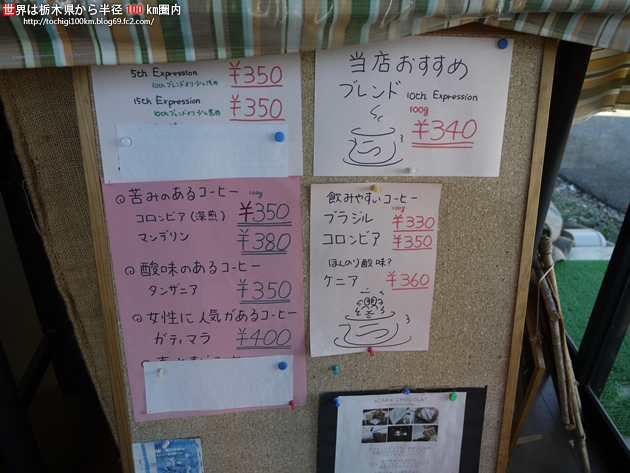 世界は栃木県から半径 100 km圏内
http://tochigi100km.blog69.fc2.com/
5th Expression ¥350
15th Expression ¥350
当店おすすめ
ブレンド 10th Expression
100g
¥340
苦みのあるコーヒー 100g
コロンビア(深煎) ¥350
マンデリン ¥380
酸味のあるコーヒー
タンザニア ¥350
女性に人気があるコーヒー
ガティマラ ¥400
飲みやすいコーヒー
100g
ブラジル ¥330
コロンビア ¥350
ほんのり酸味?
ケニア ¥360